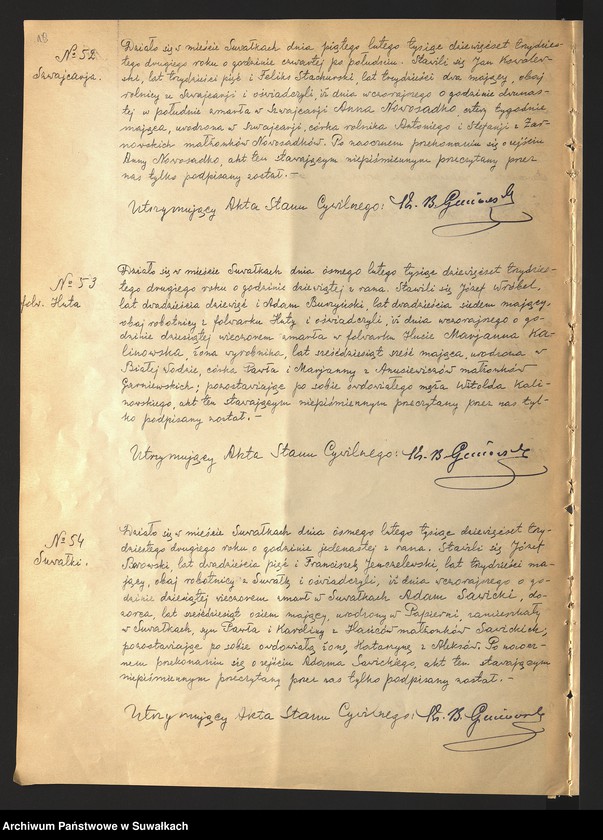 № 52
Szwajcarja.
Działo się w mieście Suwałkach dnia piątego lutego tysiąc dziewięćset trzydzies-
tego drugiego roku o godzinie czwartej po południu. Stawili się Jan Kowalew-
ski, lat trzydzieści pięć i Feliks Stachurski, lat trzydzieści dwa mający, obaj
rolnicy z Szwajcarji i oświadczyli, iż dnia wczorajszego o godzinie dwunas-
tej w południe zmarła w Szwajcarji Anna Nowosadko, cztery tygodnie
mająca, urodzona w Szwajcarji, córka rolnika Antoniego i Stefanji z Żar-
nowskich małżonków Nowosadków. Po naocznem przekonaniu się o zejściu
Anny Nowosadko, akt ten stawającym niepiśmiennym przeczytany przez
nas tylko podpisany został. –
Utrzymujący Akta Stanu Cywilnego: Ks. B.
№ 53
folw. Huta
Działo się w mieście Suwałkach dnia ósmego lutego tysiąc dziewięćset trzydzies-
tego drugiego roku o godzinie dziewiątej z rana. Stawili się Józef Wróbel,
lat dwadzieścia dziewięć i Adam Burzyński, lat dwadzieścia siedem mający,
obaj robotnicy z folwarku Huty i oświadczyli, iż dnia wczorajszego o go-
dzinie dziesiątej wieczorem zmarła w folwarku Hucie Marjanna Ka-
linowska, żona wyrobnika, lat sześćdziesiąt sześć mająca, urodzona w
Białej Wodzie, córka Pawła i Marjanny z Anusiewiczów małżonków
; pozostawiając po sobie owdowiałego męża Witolda Kali-
nowskiego, akt ten stawającym niepiśmiennym przeczytany przez nas tyl-
ko podpisany został. –
Utrzymujący Akta Stanu Cywilnego: Ks. B.
№ 54
Suwałki.
Działo się w mieście Suwałkach dnia ósmego lutego tysiąc dziewięćset trzy-
dziestego drugiego roku o godzinie jedenastej z rana. Stawili się Józef
lat dwadzieścia pięć i Franciszek Jenczelewski lat trzydzieści ma-
jący, obaj robotnicy z Suwałk i oświadczyli, iż dnia wczorajszego o go-
dzinie dziesiątej wieczorem zmarł w Suwałkach Adam Sawicki, do-
zorca, lat sześćdziesiąt osiem mający, urodzony w Papierni, zamieszkały
w Suwałkach, syn Pawła i Karoliny z małżonków Sawickich,
pozostawiając po sobie owdowiałą żonę, Katarzynę z Aleksów. Po naocz-
nem przekonaniu się o zejściu Adama Sawickiego, akt ten stawającym
niepiśmiennym przeczytany przez nas tylko podpisany został. –
Utrzymujący Akta Stanu Cywilnego: Ks. B.
Archiwum Państwowe w Suwałkach